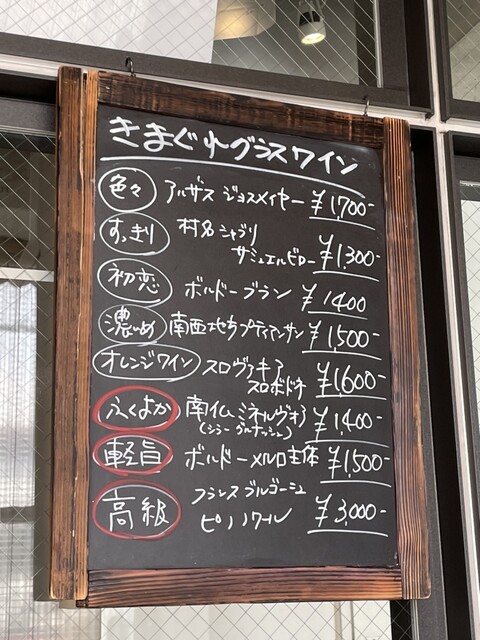 きまぐれグラスワイン
色々 アルザス ジョスメイヤー ¥1,700-
すっきり 村名シャブリ
サミュエルビロー ¥1,300-
初恋 ボルドーブラン ¥1400
濃いめ 南西地方プティマンサン ¥1,500-
オレンジワイン スロヴァキア
スロボドネ ¥1,600-
ふくよか 南仏ミネルヴォワ ¥1,400-
(シラー グルナッシュ)
軽旨 ボルドーメルロ主体 ¥1,500-
高級 フランスブルゴーニュ
ピノノワール ¥3,000-